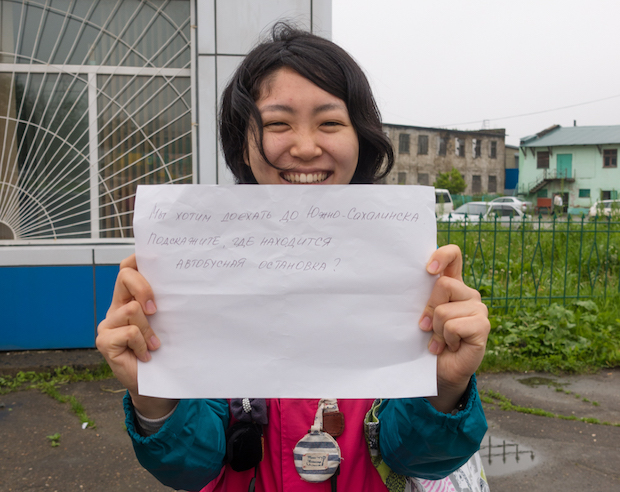 Мы хотим доехать до Южно-Сахалинска
Подскажите, где находится
автобусная остановка?